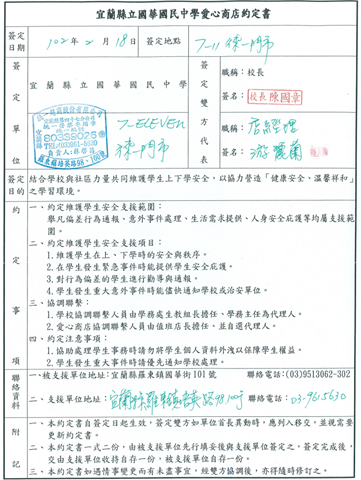 宜蘭縣立國華國民中學愛心商店約定書
簽定日期 102年2月18日 簽定地點 7-11
簽定單位
宜蘭縣立國華國民中學
7-ELEVEN
簽定雙方代表
職稱：校長
簽名：校長陳國章
職稱：店經理
簽名：游麗蘭
簽定目的
結合學校與社區力量共同維護學生上下學安全，以協力營造「健康安全、溫馨祥和」之學習環境。
約定事項
一、約定維護學生安全支援範圍：
舉凡偏差行為通報、意外事件處理、生活需求提供、人身安全庇護等均屬支援範圍。
二、約定維護學生安全支援項目：
1.維護學生在上、下學時的安全與秩序。
2.在學生發生緊急事件時能提供學生安全庇護。
3.對行為偏差的學生進行勸導與通報。
4.學生發生重大意外事件時能儘快通知學校或治安單位。
三、協調聯繫：
1.學校協調聯繫人員由學務處生教組長擔任、學務主任為代理人。
2.愛心商店協調聯繫人員由值班店長擔任，並自選代理人。
四、約定注意事項：
1.協助處理學生事務時請勿將學生個人資料外洩以保障學生權益。
2.學生發生重大事件時請優先通知學校處理。
聯絡資料
一、被支援單位地址：宜蘭縣羅東鎮國華街101號 聯絡電話：(03)9513062-302
二、支援單位地址：宜蘭縣羅東鎮培英路98.100號 聯絡電話：03-9615630
附記
一、本約定書自簽定日起生效，簽定雙方如單位首長異動時，應列入移交，並視需要更新約定書。
二、本約定書一式二份，由被支援單位先行填妥後與支援單位簽定之，簽定完成後，交由支援單位收持自存一份，被支援單位自存一份。
三、本約定書如遇情事變更而有未盡事宜，經雙方協調後，亦得隨時修訂之。